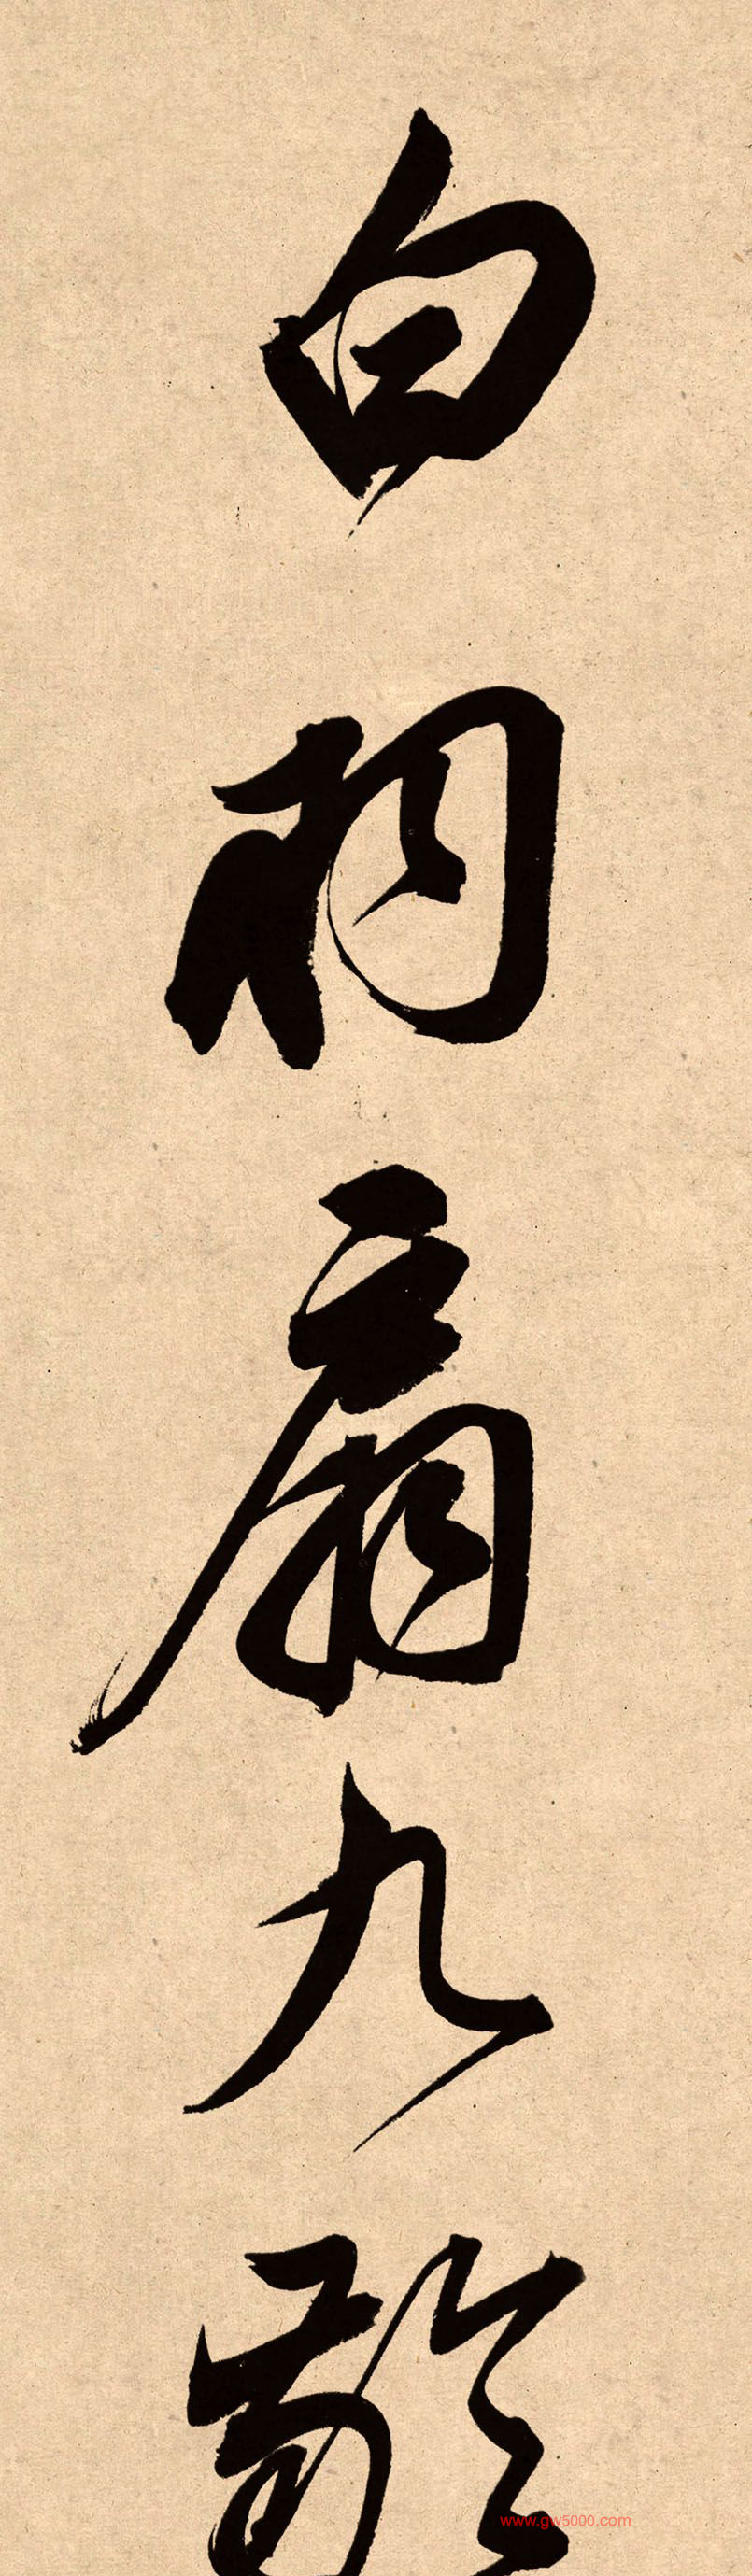 白羽扇九齡
www.gw5000.com